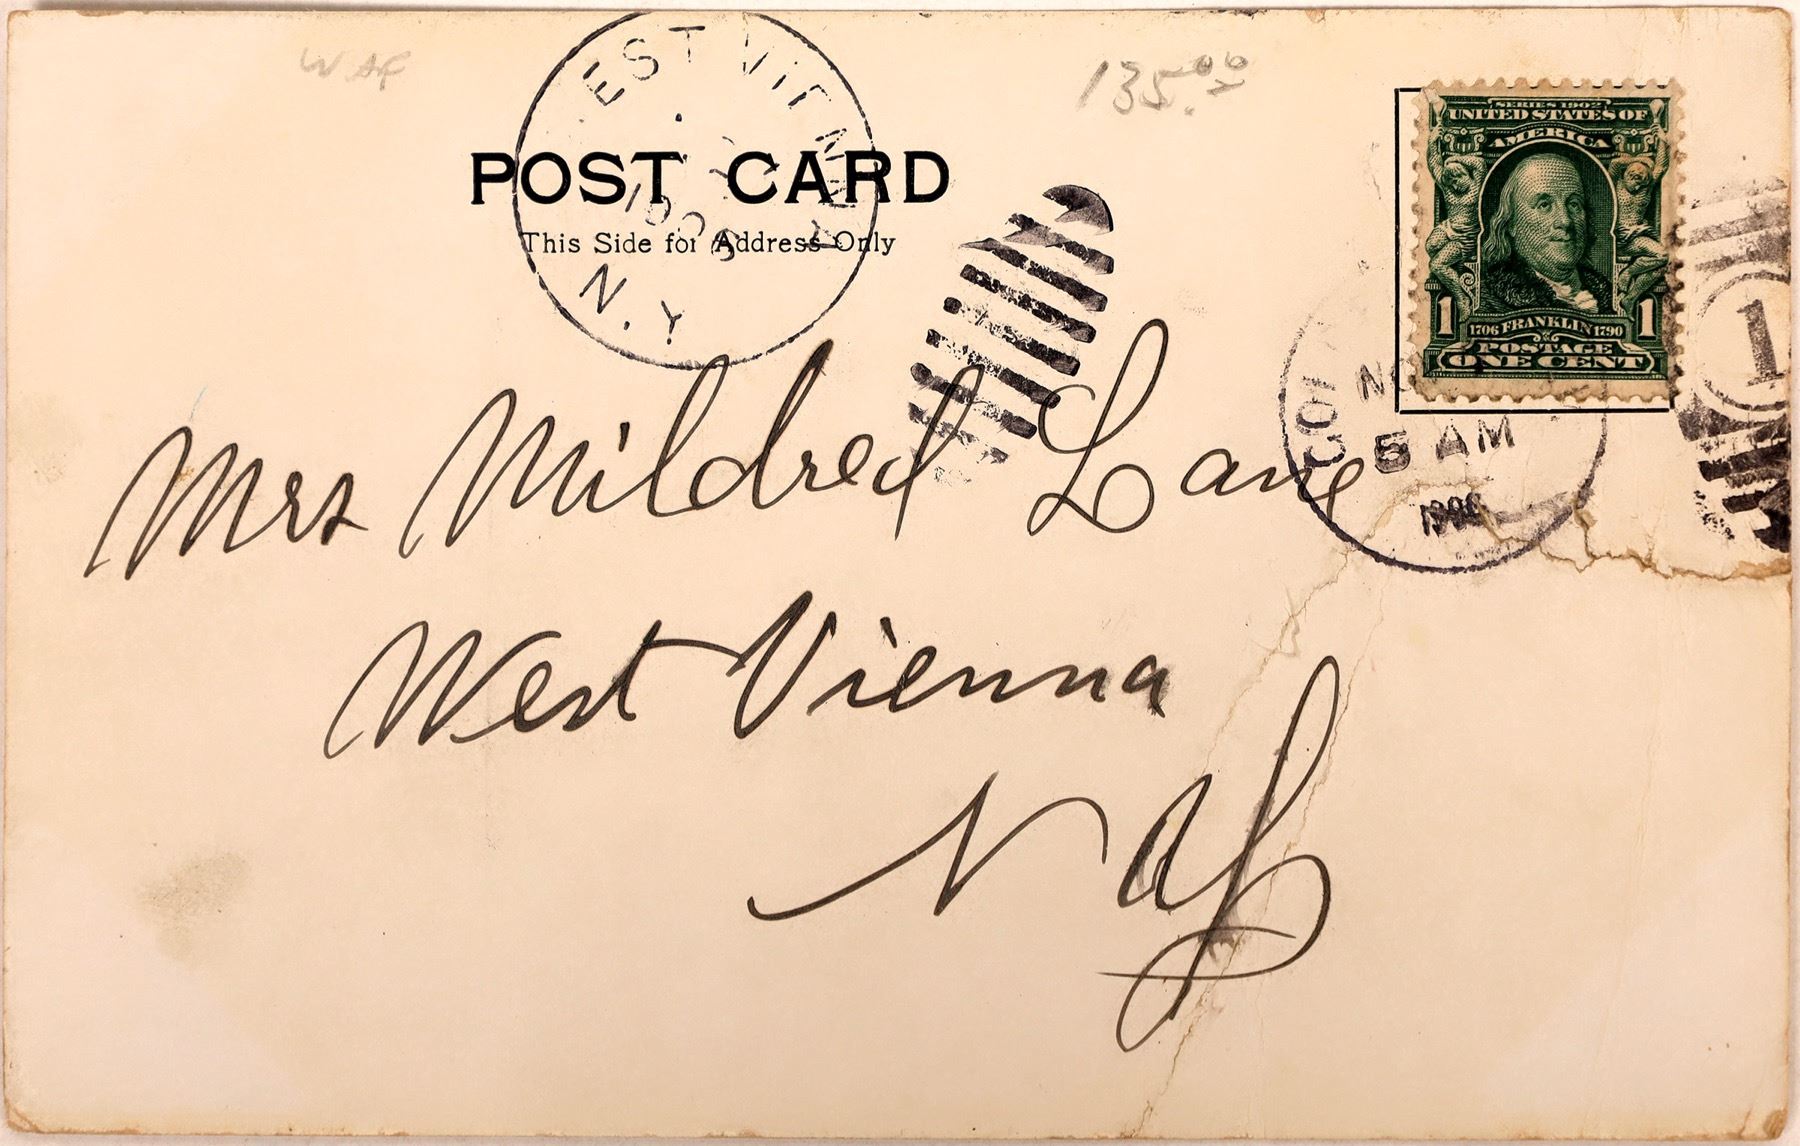 WAF
135.00
EST VIENNA
N.Y.
POST CARD
This Side for Address Only
SERIES 1902
UNITED STATES OF
AMERICA
1 1706 FRANKLIN 1790 1
POSTAGE
ONE CENT
1
5 AM
Mrs Mildred Lane
West Vienna
N.Y.